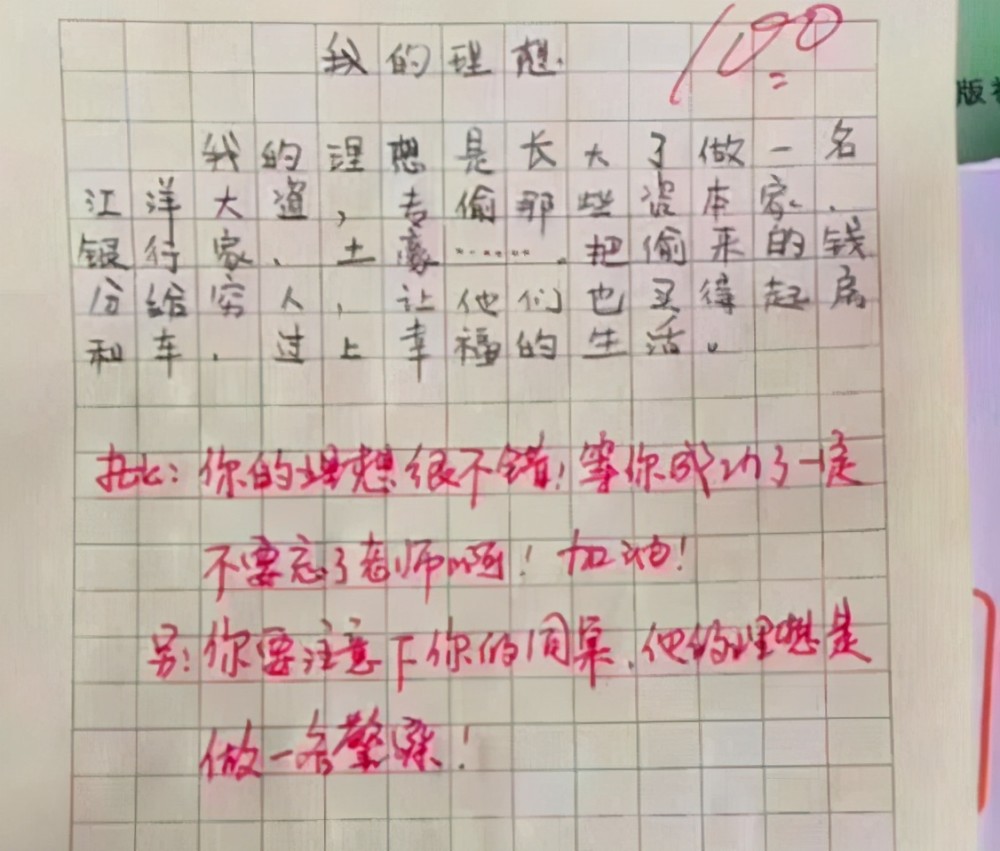 我的理想
100
我的理想是长大了做一名
江洋大盗，专偷那些资本家、
银行家、土豪……，把偷来的钱
份给穷人，让他们也买得起房
和车，过上幸福的生活。
批：你的理想很不错！等你成功了一定
不要忘了老师啊！加油！
另：你要注意下你的同桌，他的理想是
做一名警察！
版